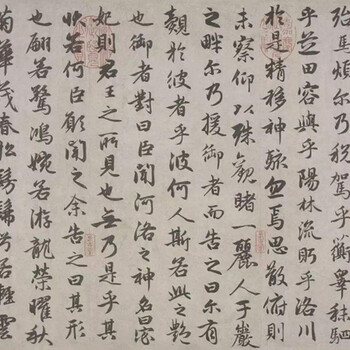 殆馬煩尔乃稅駕乎蘅皋秣駟
乎芝田容與乎陽林流眄乎洛川
於是精移神駭忽焉思散俯則
未察仰以殊觀睹一麗人于巖
之畔尔乃援御者而告之曰尔有
覿於彼者乎彼何人斯若此之艷
也御者對曰臣聞河洛之神名曰宓
妃則君王之所見也無乃是乎其
狀若何臣願聞之余告之曰其形
也翩若驚鴻婉若游龍榮曜秋
菊華茂春松髣髴兮若輕雲